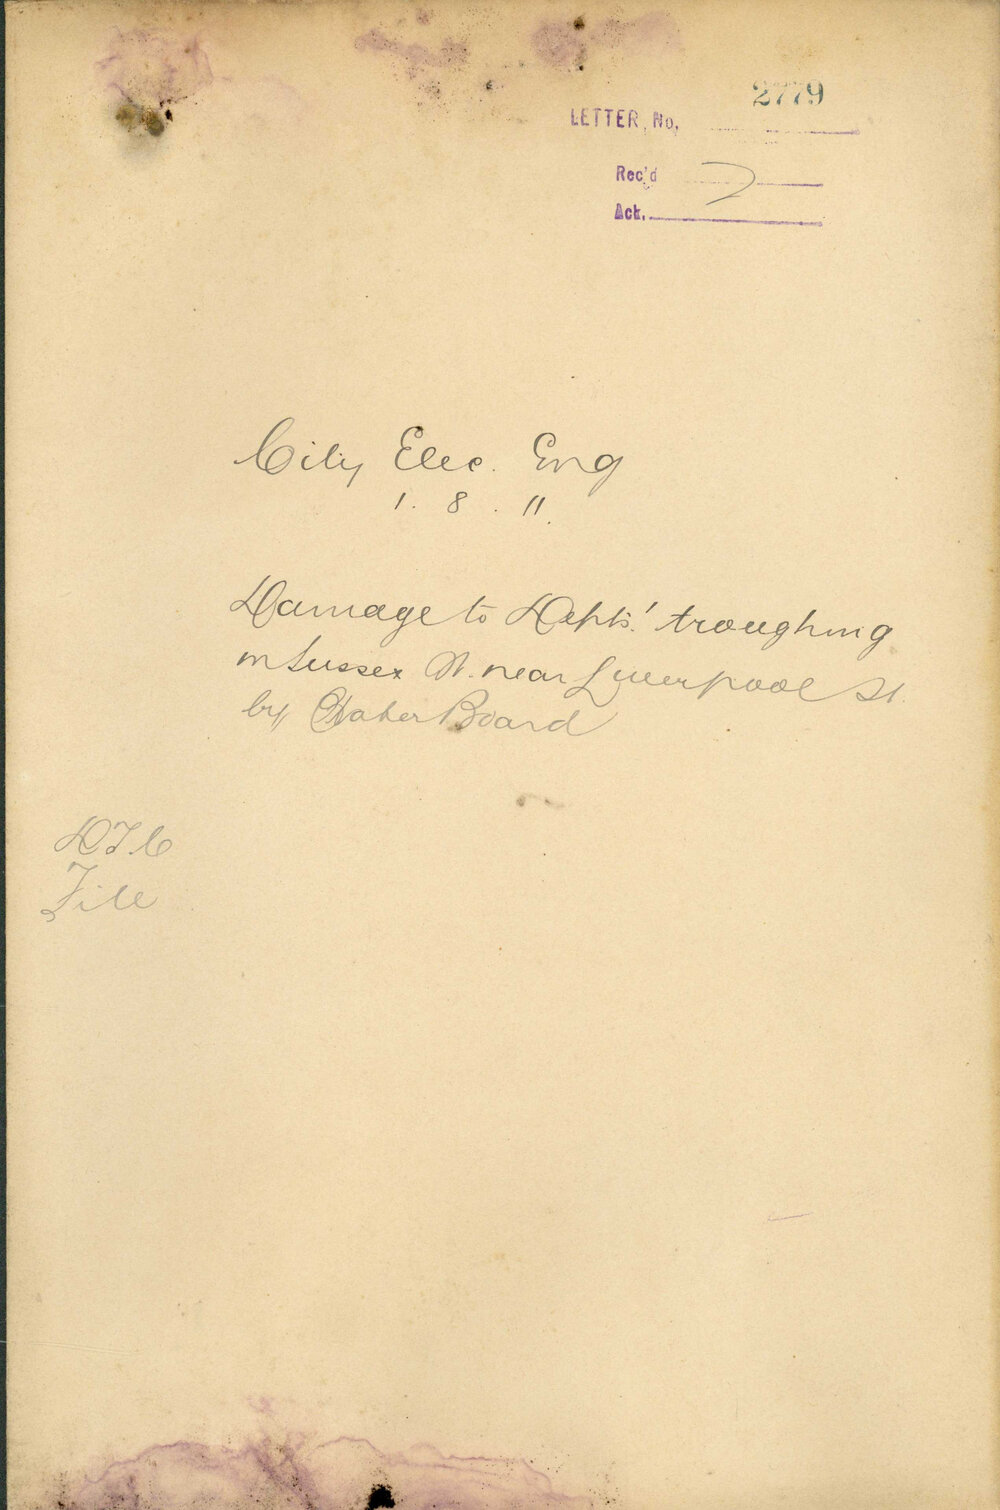 2779
LETTER No.
Rec'd
Ack.
City Elec. Eng
1. 8. 11.
Damage to Depts'. troughing
in Sussex St. near Liverpool St.
by Water Board
File